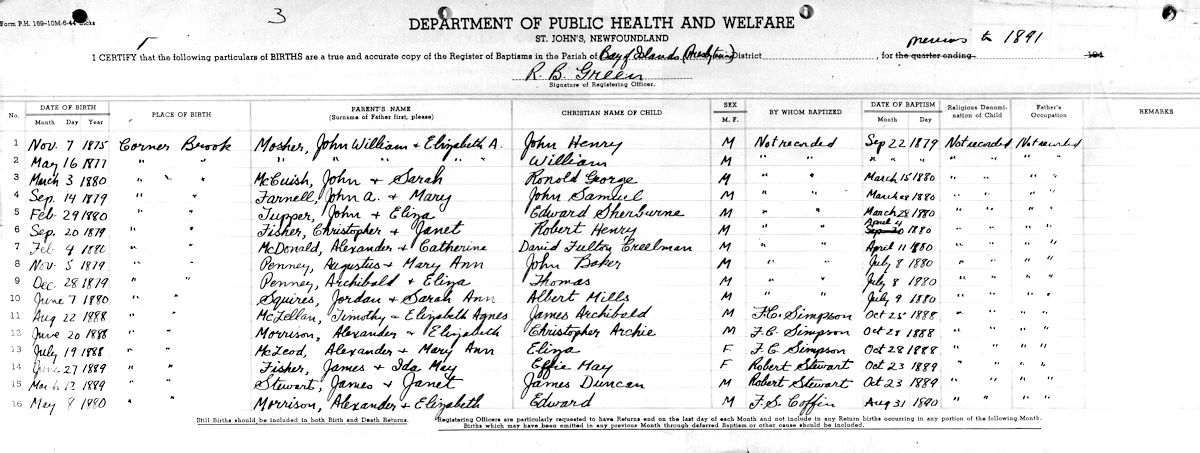 Form P.H. 169-10M-6-44 Dicks
3
DEPARTMENT OF PUBLIC HEALTH AND WELFARE
ST. JOHN'S, NEWFOUNDLAND
I CERTIFY that the following particulars of BIRTHS are a true and accurate copy of the Register of Baptisms in the Parish of Bay of Islands (Presbyterian) District, for the quarter ending previous to 1891 194
R. B. Green
Signature of Registering Officer.
No. DATE OF BIRTH Month Day Year PLACE OF BIRTH PARENT'S NAME (Surname of Father first, please) CHRISTIAN NAME OF CHILD SEX M. F. BY WHOM BAPTIZED DATE OF BAPTISM Month Day Religious Denomi-nation of Child Father's Occupation REMARKS
1 Nov. 7 1875 Corner Brook Mosher, John William & Elizabeth A. John Henry M Not recorded Sep 22 1879 Not recorded Not recorded
2 May 16 1877 " " " " " " " William M " " " " " " " " "
3 March 3 1880 " " McCuish, John & Sarah Ronold George M " " March 15 1880 " " " "
4 Sep. 14 1879 " " Farnell, John A. & Mary John Samuel M " " March 28 1880 " " " "
5 Feb 29 1880 " " Tupper, John & Eliza Edward Sherburne M " " March 28 1880 " " " "
6 Sep. 20 1879 " " Fisher, Christopher & Janet Robert Henry M " " April 4 Sep 20 1880 " " " "
7 Feb 4 1880 " " McDonald, Alexander & Catherine David Fulton Creelman M " " April 11 1880 " " " "
8 Nov. 5 1879 " " Penney, Augustus & Mary Ann John Baker M " " July 8 1880 " " " "
9 Dec. 28 1879 " " Penney, Archibald & Eliza Thomas M " " July 8 1880 " " " "
10 June 7 1880 " " Squires, Jordan & Sarah Ann Albert Mills M " " July 9 1880 " " " "
11 Aug 22 1888 " " McLellan, Timothy & Elizabeth Agnes James Archibald M F.C. Simpson Oct 25 1888 " " " "
12 June 20 1888 " " Morrison, Alexander & Elizabeth Christopher Archie M F.C. Simpson Oct 28 1888 " " " "
13 July 19 1888 " " McLeod, Alexander & Mary Ann Eliza F F.C. Simpson Oct 28 1888 " " " "
14 June 27 1889 " " Fisher, James & Ida May Effie May F Robert Stewart Oct 23 1889 " " " "
15 March 12 1889 " " Stewart, James & Janet James Duncan M Robert Stewart Oct 23 1889 " " " "
16 May 8 1880 " " Morrison, Alexander & Elizabeth Edward M F.S. Coffin Aug 31 1890 " " " "
Still Births should be included in both Birth and Death Returns. *Registering Officers are particularly requested to have Returns end on the last day of each Month and not include in any Return births occurring in any portion of the following Month.
Births which may have been emitted in any previous Month through deferred Baptism or other cause should be included.